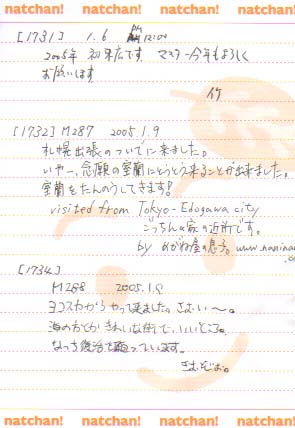 natchan! natchan! natchan! natchan!
[1731] 1.6 12:00
2005年 初来店です。マスター今年もよろしく
お願いします。
[1732] M287 2005.1.9
札幌出張のついでに来ました。
いやー、念願の室蘭にとうとう来ることが出来ました。
室蘭をたんのうしてきます!
visited from Tokyo-Edogawa city
ごっちんの家の近所です。
by めがね屋の息子。www.nanina
[1734]
M288 2005.1.9
ヨコスカからやって来ました。さむい〜。
海の方とかきれいな街で、いいところ。
なっち復活で
natchan! natchan! natchan! natchan!